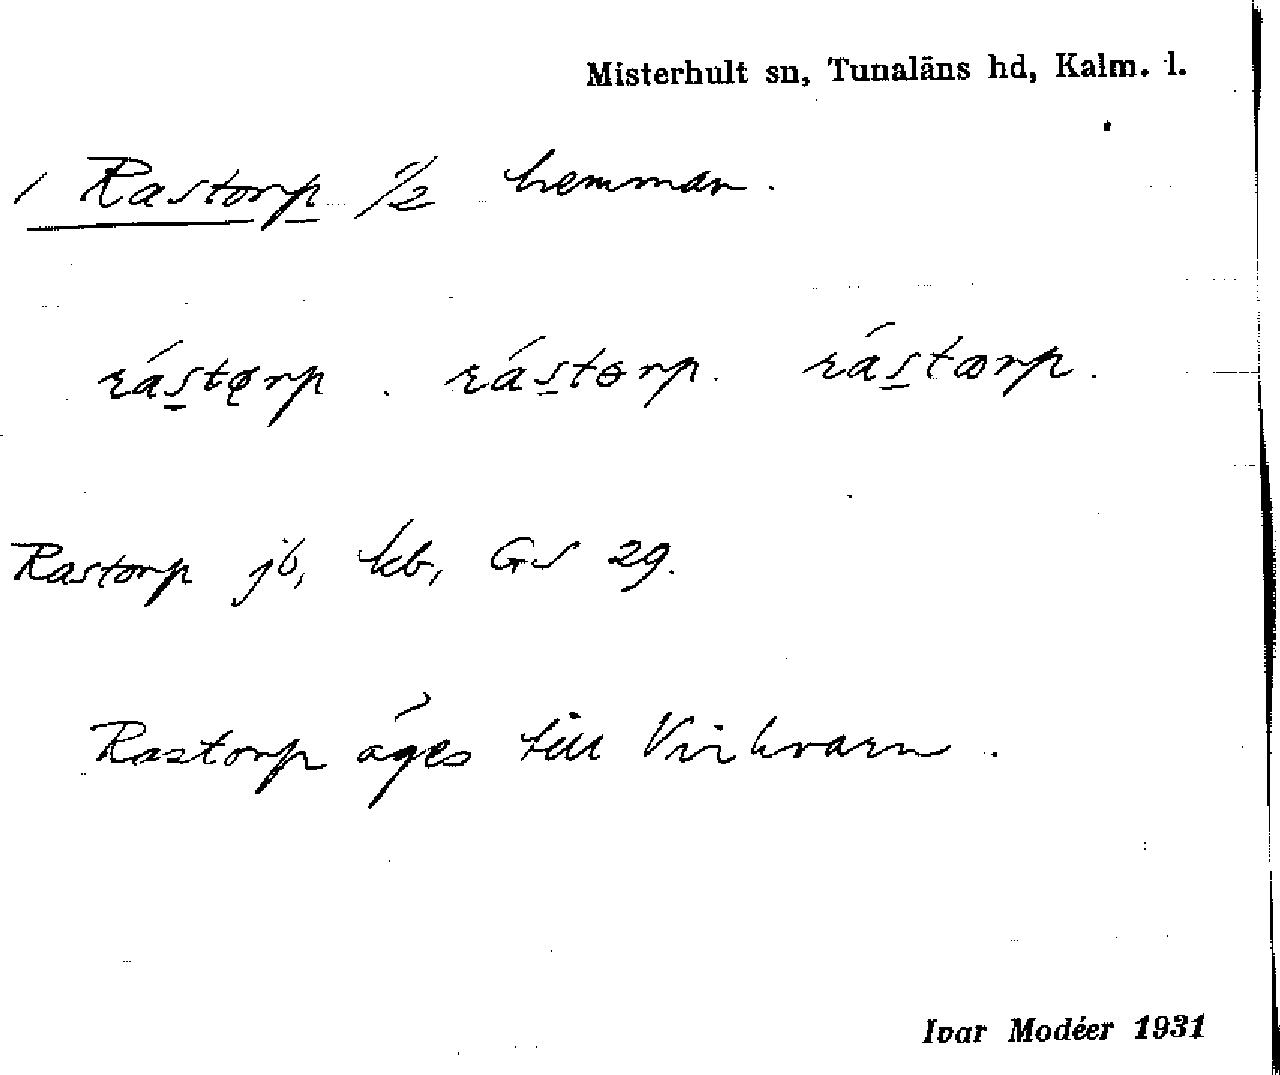 Misterhult sn, Tunaläns hd, Kalm. l.
/ Rastorp 1/2 hemman.
rástørp . rástɵrp. rástœrp.
Rastorp jb, kb, GS 29.
Rastorp äges till Virkvarn.
Ivar Modéer 1931